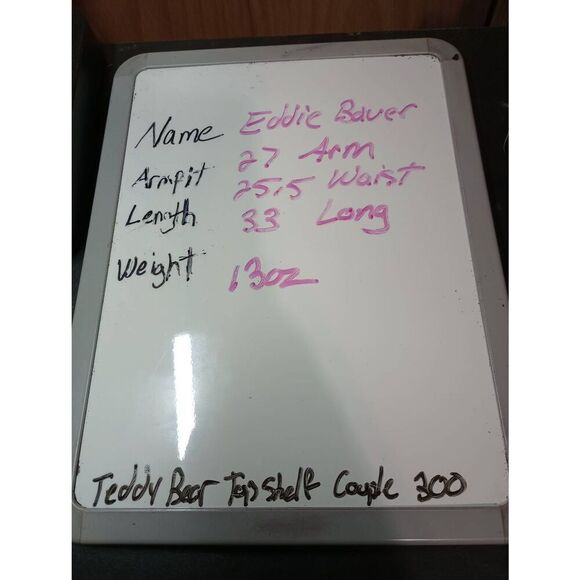 Name Eddie Bauer
Armpit 27 Arm
25.5 Waist
Length 33 Long
Weight 13oz
Teddy Bear Top Shelf Couple 300